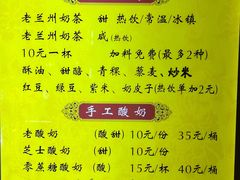 老兰州奶茶 甜 热饮/常温/冰镇
老兰州奶茶 咸(热饮)
10元一杯 加料免费(最多2种)
酥油、甜醅、青稞、荞麦、炒米
红豆、绿豆、紫米、奶皮子(热饮单加2元)
手工酸奶
老酸奶 (酸甜) 10元/份 35元/桶
芝士酸奶 (甜) 10元/份
零蔗糖酸奶 (酸) 15元/杯 40元/桶